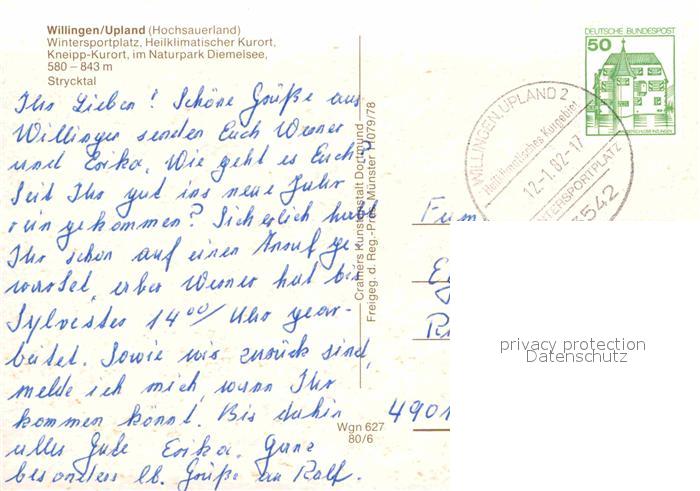 Willingen/Upland (Hochsauerland)
Wintersportplatz, Heilklimatischer Kurort,
Kneipp-Kurort, im Naturpark Diemelsee,
580 – 843 m
Strycktal
Ihr Lieben! Schöne Grüße aus
Willingen senden Euch Werner
und Erika. Wie geht es Euch?
Seid Ihr gut ins neue Jahr
rein gekommen? Sicherlich habt
Ihr schon auf einen Anruf ge
wartet, aber Werner hat bis
Sylvester 14 00/ Uhr gear-
beitet. Sowie wir zurück sind,
melde ich mich, wann Ihr
kommen könnt. Bis dahin
alles Gute Erika. Ganz
besonders lb. Grüße an Ralf.
Cramers Kunstanstalt Dortmund
Freigeg. d. Reg.-Präs. Münster 11079/78
Wgn 627
80/6
DEUTSCHE BUNDESPOST
50
WILLINGEN, UPLAND 2
Heilklimatisches Kurgebiet
12.-1.82-17
WINTERSPORTPLATZ
3542
Fam
4901
privacy protection
Datenschutz